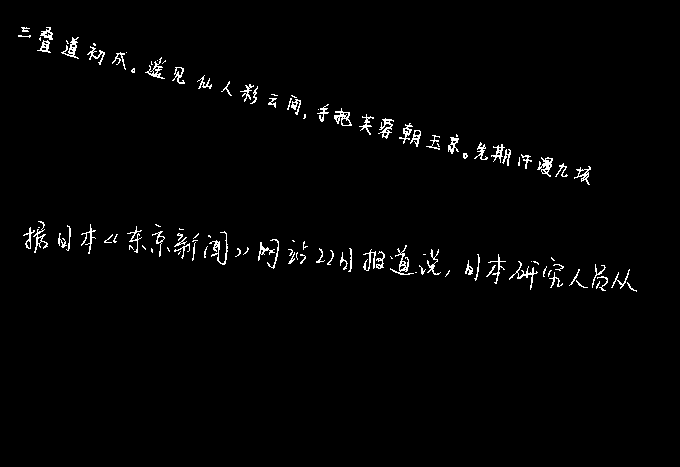 三叠道初成。遥见仙人彩云间，手把芙蓉朝玉京。先期汗漫九垓
据日本《东京新闻》网站22日报道说，日本研究人员从